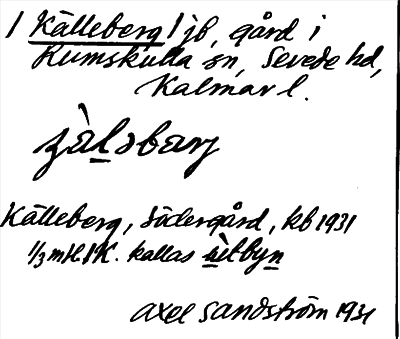 / Källeberg / jb, gård i
Rumskulla sn, Sevede hd,
Kalmar l.
Källeberg, Södergård, kb 1931
1/3 mtl / K. kallas
Axel Sandström 1931